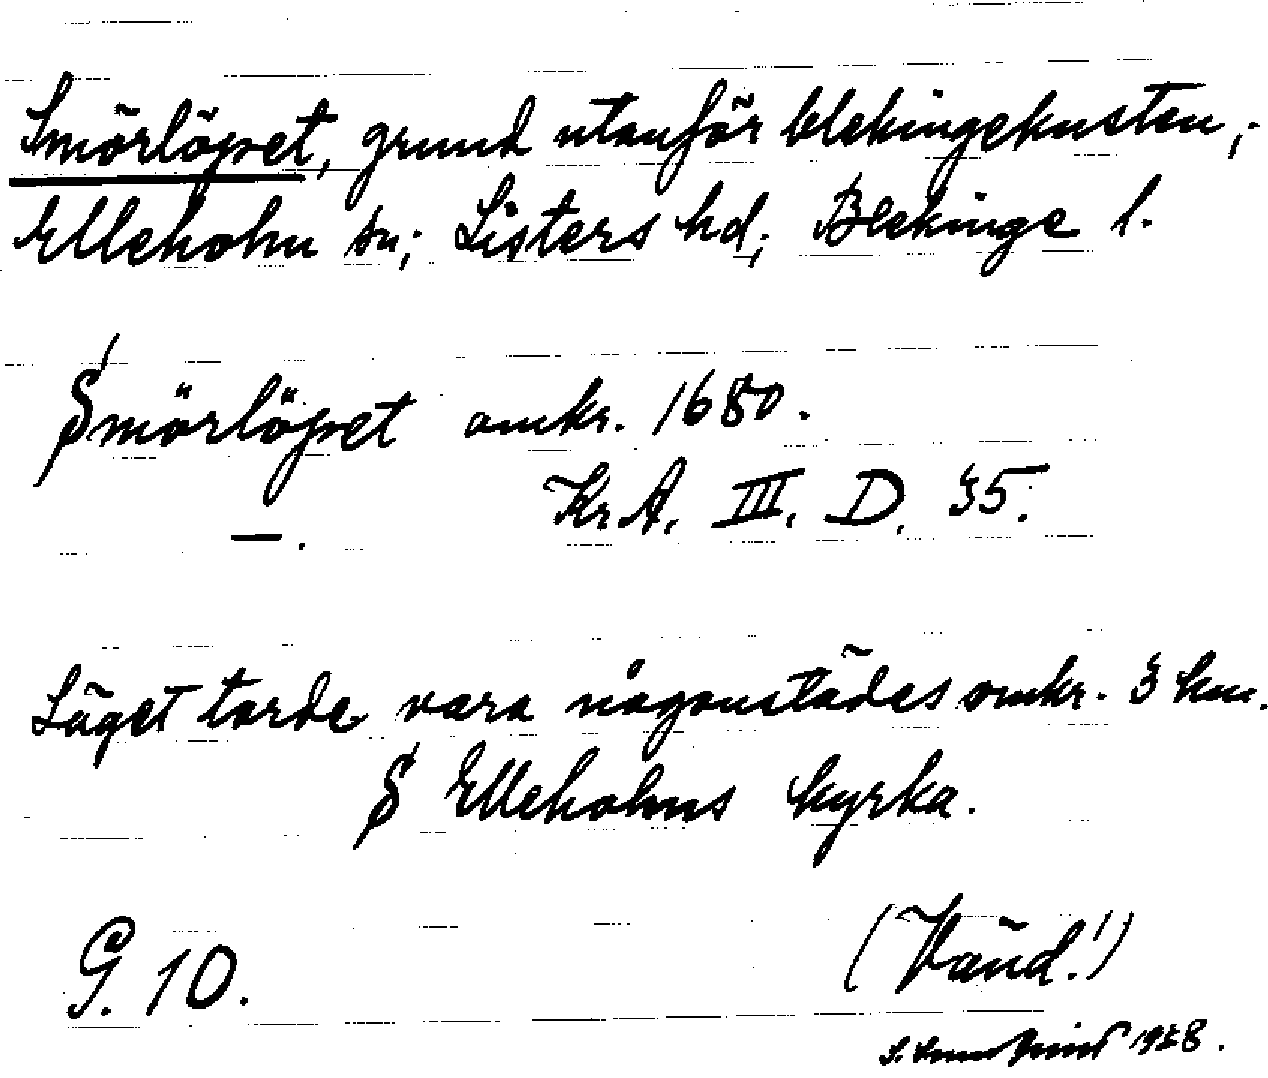 Smörlöpet, grund utanför blekingekusten;
Elleholm sn; Listers hd; Blekinge l.
Smörlöpet omkr. 1680.
Kr.A. III. D. 35.
—.
Läget torde vara någonstädes omkr. 3 km.
S Elleholms kyrka.
G. 10.
(Vänd!)
1928.